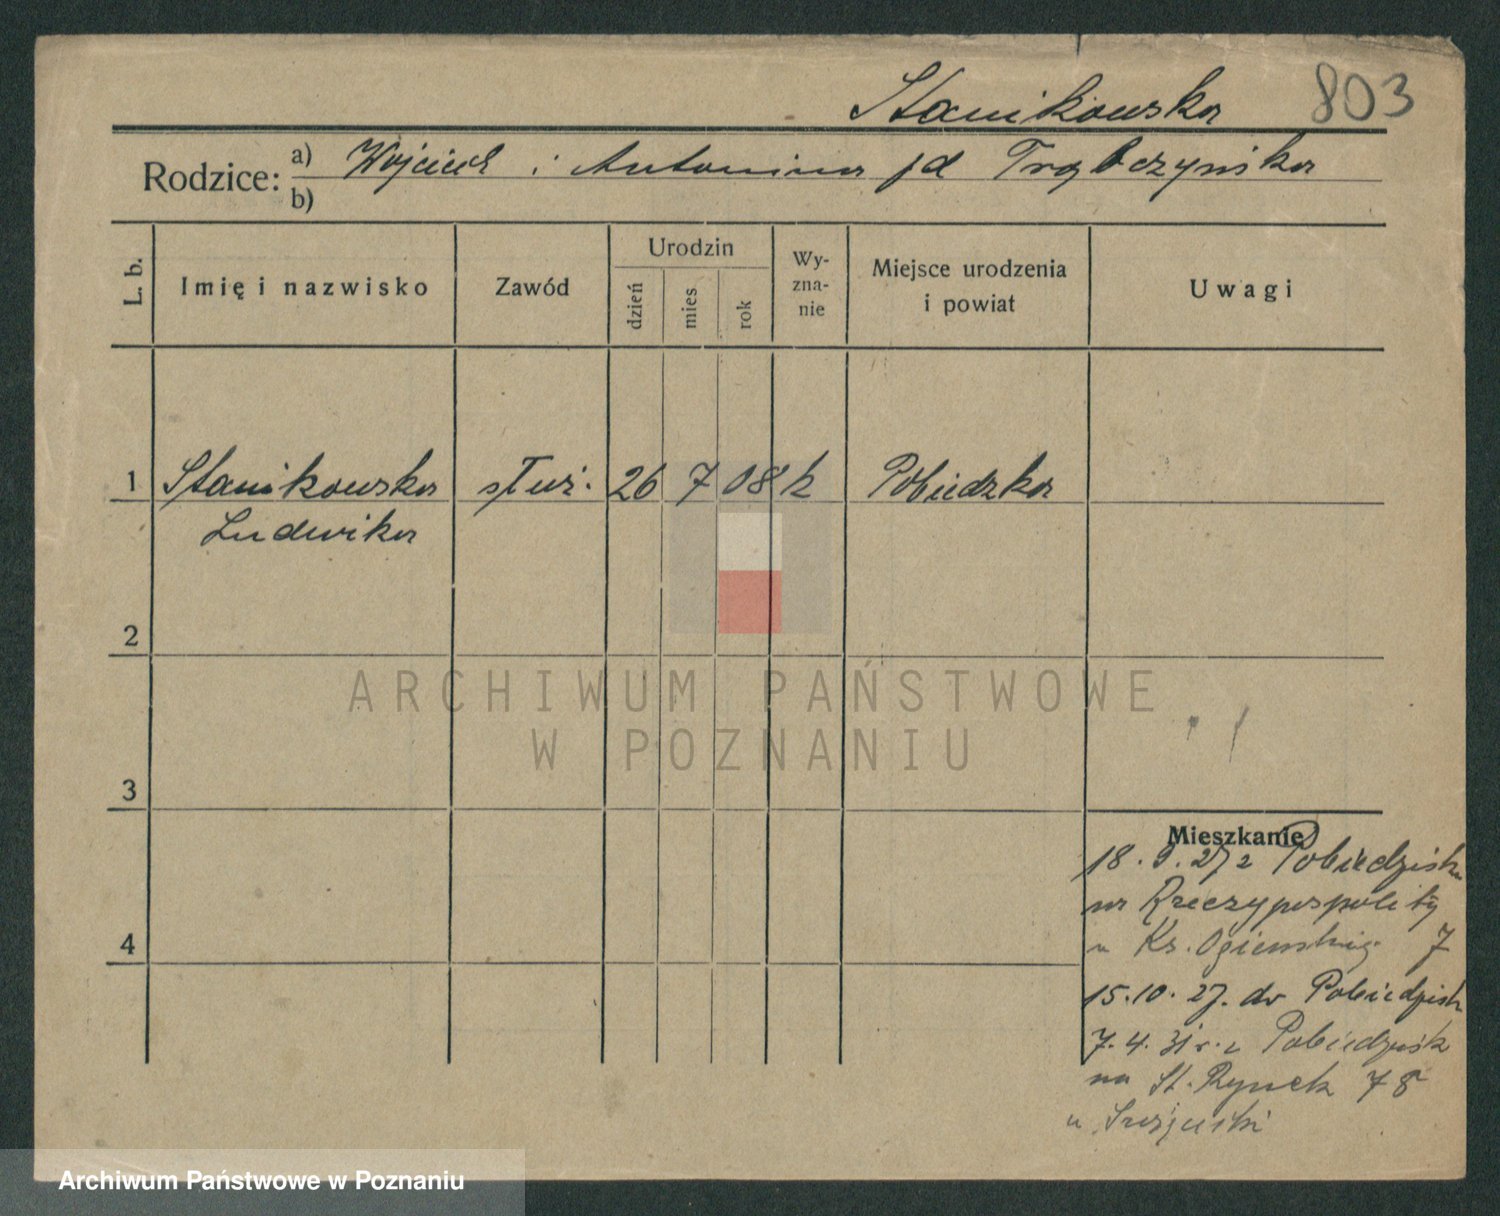 Stanikowska 803
Rodzice: a) Wojciech i Antonina jd Trąbczyńska
b)
L. b. Imię i nazwisko Zawód Urodzin dzień mies rok Wyznanie Miejsce urodzenia i powiat Uwagi
1 Stanikowska służ. 26 7 08 k Pobiedzka
Ludwika
2
ARCHIWUM PAŃSTWOWE
W POZNANIU
3
Mieszkanie
18. 9. 27 z Pobiedzisk
na Rzeczypospolitej
u Ks. 7
4
15.10. 27. do Pobiedzisk
7. 4. 31 r. z Pobiedzisk
na St. Rynek 78
u
Archiwum Państwowe w Poznaniu